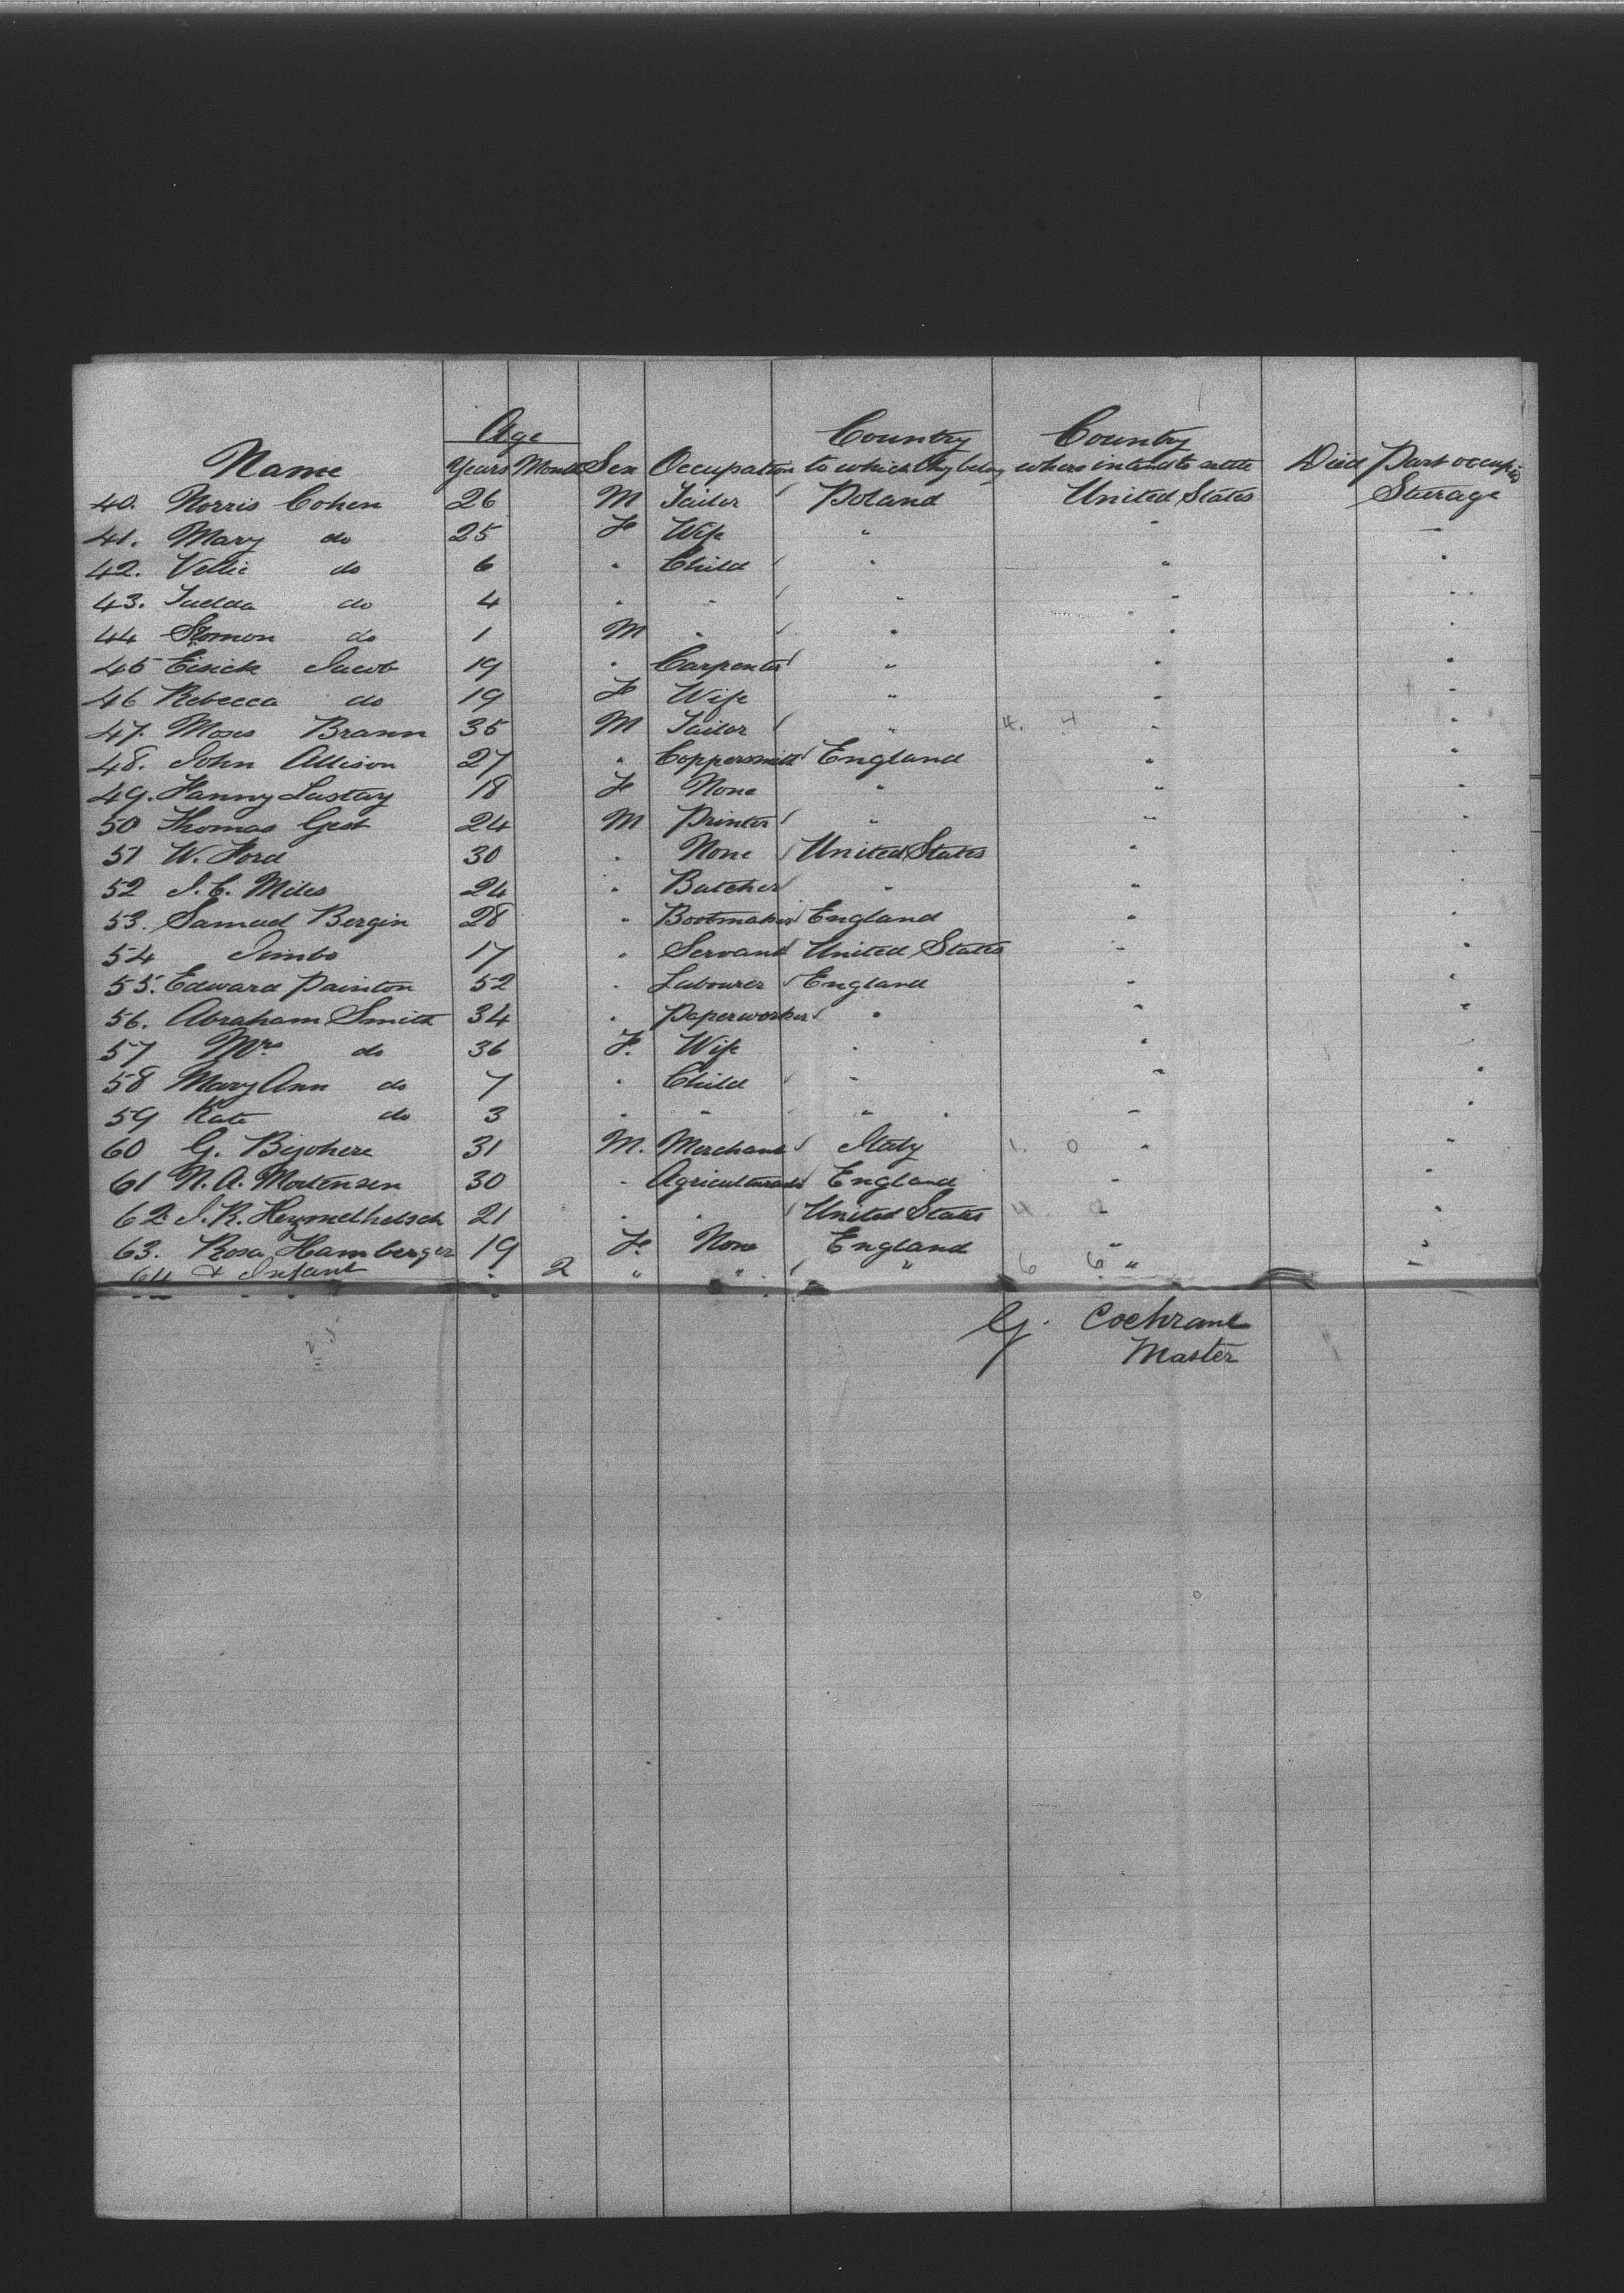 Age Country Country
Name Years Months Sex Occupation to which they belong where intend to settle Died Part occupied
40. Norris Cohen 26 M Tailor Poland United States Steerage
41. Mary do 25 Fe Wife " " "
42. Vettie do 6 " Child " " "
43. do 4 " " " " "
44 do 1 M " " " "
45 Eisick Jacob 19 " Carpenter " " "
46 Rebecca do 19 Fe Wife " " "
47. Moses Brann 35 M Tailor " 4. 4 " "
48. John Allison 27 " Coppersmith England " "
49. Hanny Lustay 18 Fe None " " "
50 Thomas Gest 24 M Printer " " "
51 W. Ford 30 " None United States " "
52 J. C. Miles 24 " Butcher " " "
53. Samuel Bergin 28 " Bootmaker England " "
54 Jimbo 17 " Servant United States " "
55. Edward Painton 52 " Labourer England " "
56. Abraham Smith 34 " Paperworker " " "
57 Mrs do 36 F. Wife " " "
58 Mary Ann do 7 " Child " " "
59 Kate do 3 " " " " "
60 G. 31 M. Merchant Italy 1. 0 " "
61 N. A. Mortensen 30 " England " "
62. J. R. 21 " " United States 4. " "
63. Rosa Hamberger 19 Fe None England " "
64 & Infant " 2 " " " 6 6 " "
G. Cochrane
Master